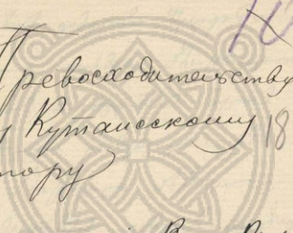 Превосходительству
у Кутаисскому 18
тору